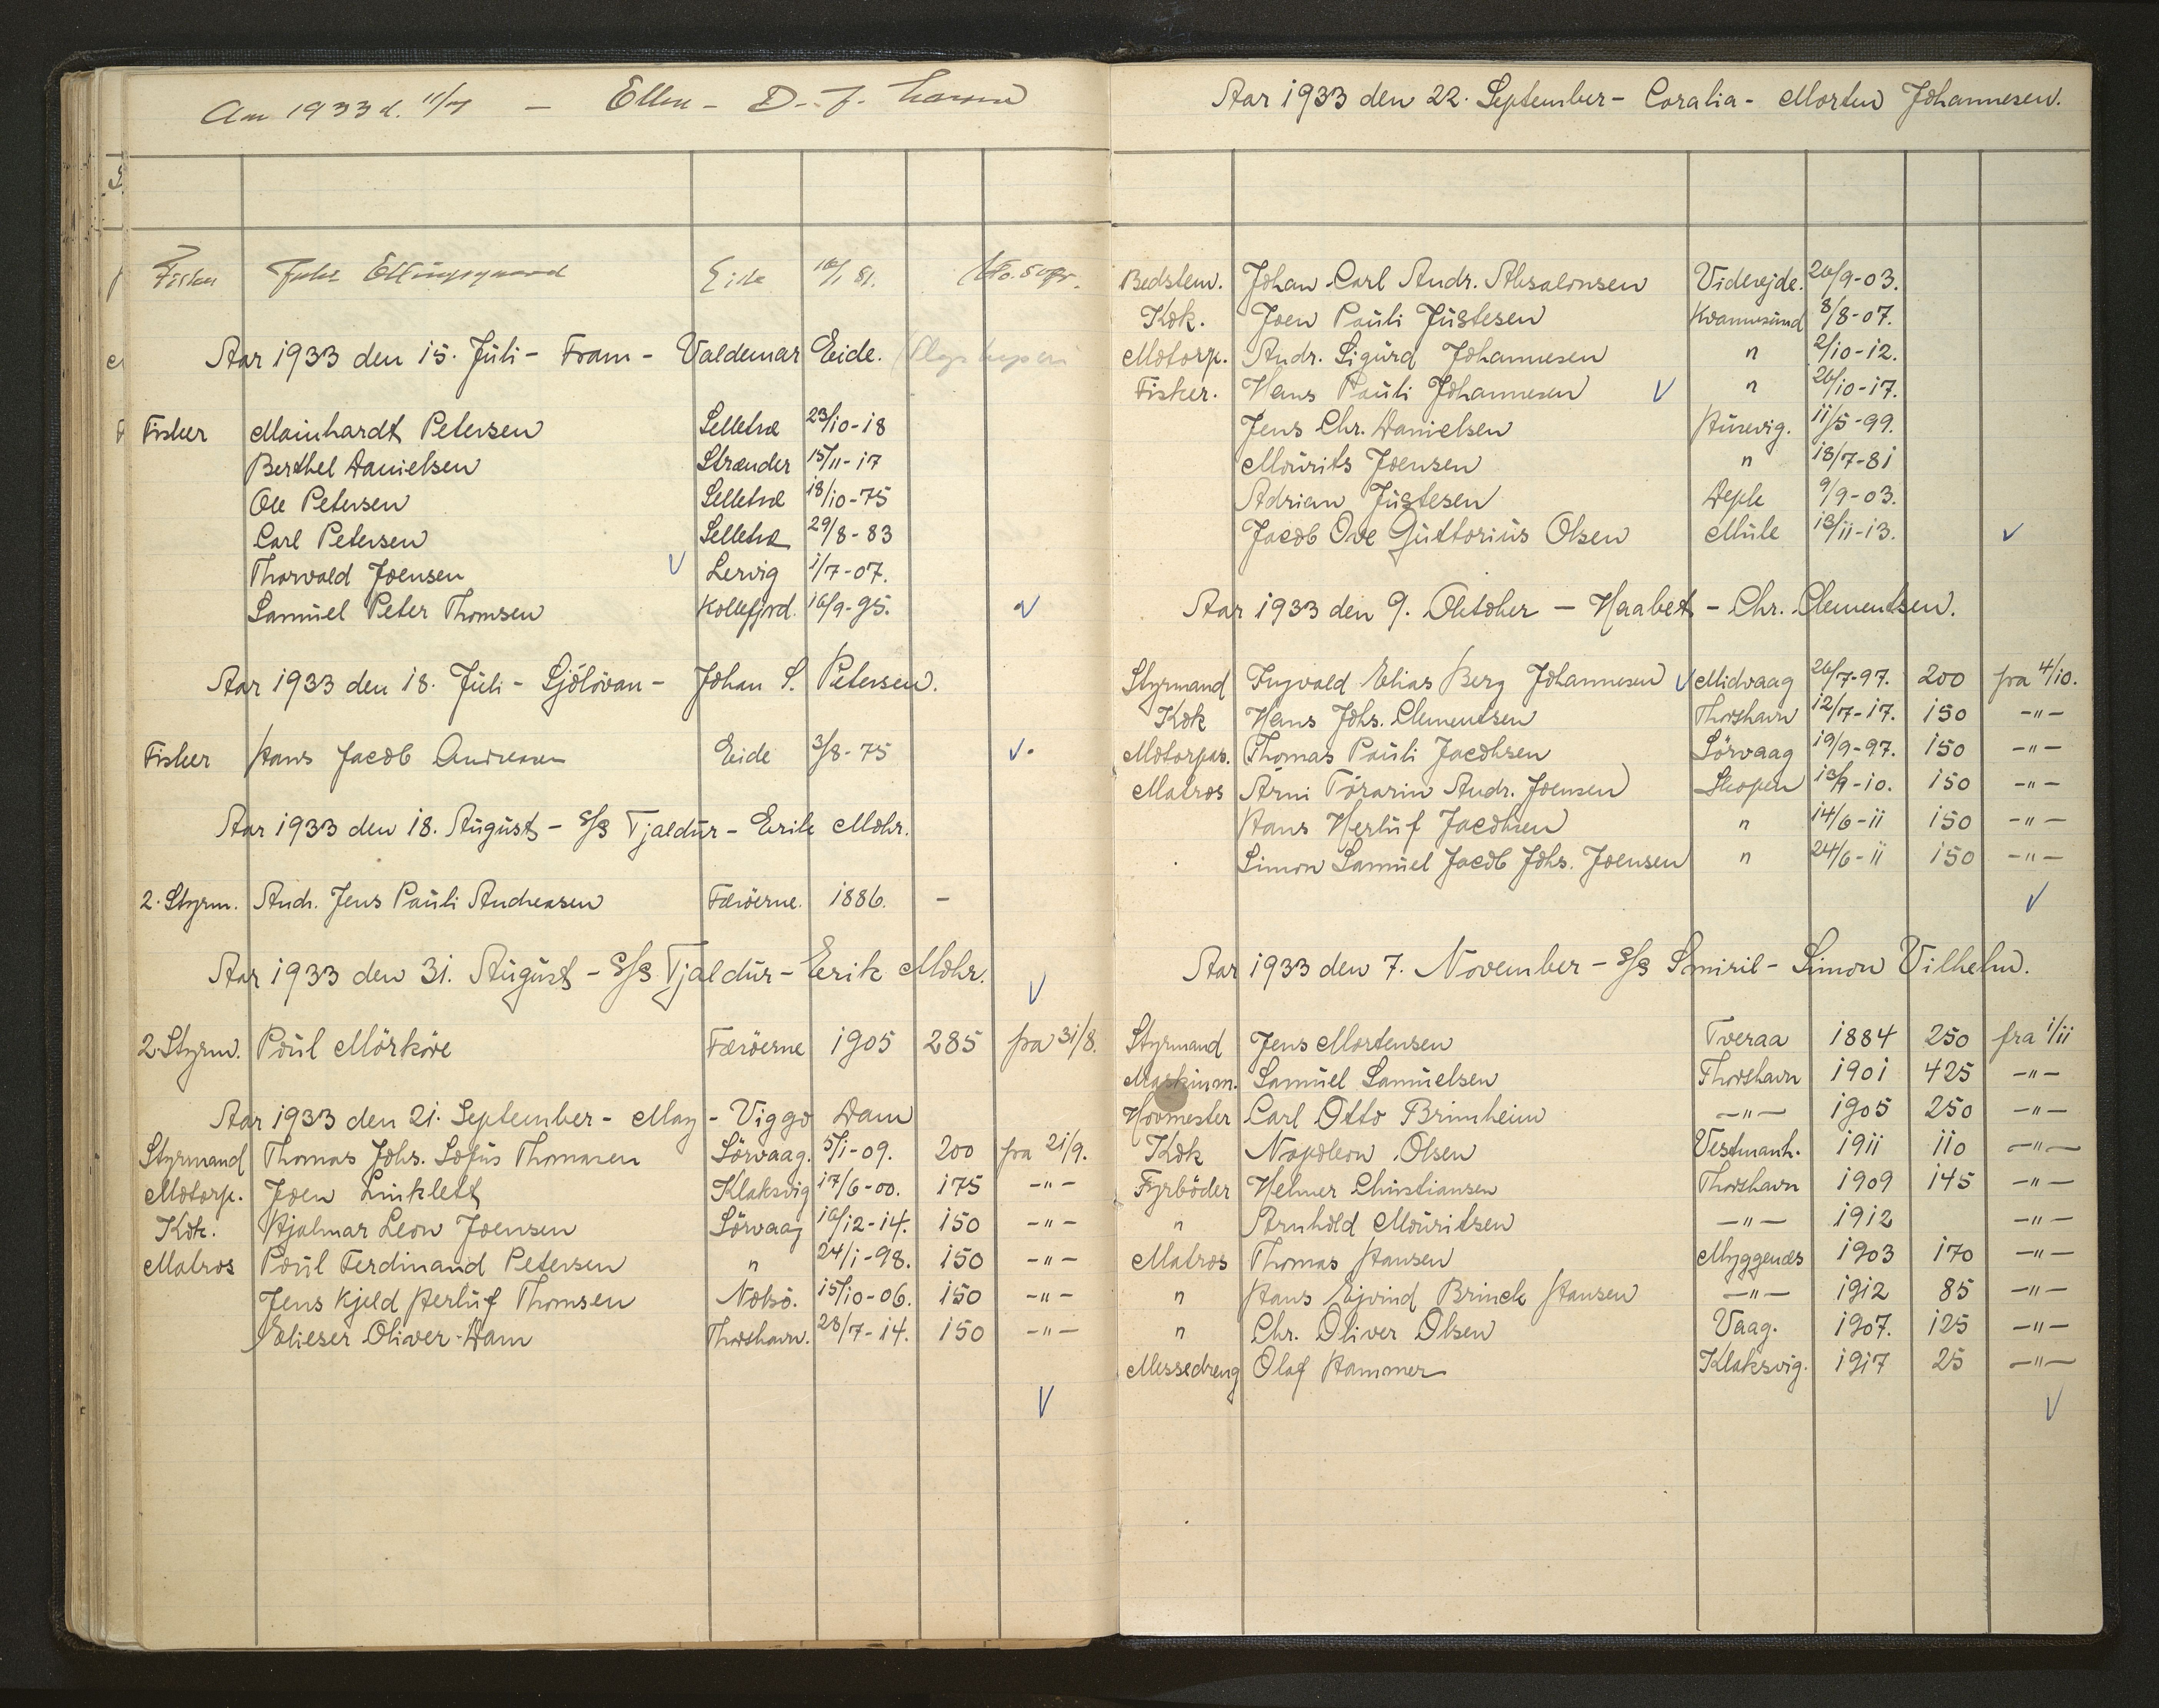 Aar 1933 d. 11/7 - Ellen - D. J.
Fisker Eide 18/1 81.
Aar 1933 den 15. Júli - Fram - Valdemar Eide.
Fisker Mainhardt Petersen Selletræ 23/10-18
Berthel Danielsen Strænder 15/11-17
Ole Petersen Selletræ 18/10-75
Carl Petersen Selletræ 29/8-83
Thorvald Joensen V Lervig 1/7-07.
Samúel Peter Thomsen Kollefjord. 16/9-95. V
Aar 1933 den 18. Júli - Sjölövan - Johan S. Petersen.
Fisker Hans Jacob Andreasen Eide 3/8-75 V.
Aar 1933 den 18. Aúgúst - S/S Tjaldúr - Erik Mohr.
2. Styrm. Andr. Jens Paúli Andreasen Færöerne. 1886. -
Aar 1933 den 31. Aúgúst - S/S Tjaldúr - Erik Mohr. V
2. Styrm. Poúl Mörköre Færöerne 1905 285 fra 31/8.
Aar 1933 den 21. September - May - Viggo Dam
Styrmand Thomas Johs. Sofús Thomasen Sörvaag. 5/1-09. 200 fra 21/9.
Motorp. Joen Linklett Klaksvig 17/6-00. 175 -"-
Kok. Hjalmar Leon Joensen Sörvaag 16/12-14. 150 -"-
Matros Poúl Ferdinand Petersen " 24/1-98. 150 -"-
Jens Kjeld Herlúf Thomsen Nolsö. 15/10-06. 150 -"-
Elieser Oliver Dam Thorshavn. 28/7-14. 150 -"-
V
Aar 1933 den 22. September - Coralia - Morten Johannesen.
Bedstem. Johan Carl Andr. Absalonsen Viderejde. 26/9-03.
Kok. Joen Paúli Jústesen Kvannesúnd 8/8-07.
Motorp. Andr. Sigúrd Johannesen " 2/10-12.
Fisker. Hans Paúli Johannesen V " 26/10-17.
Jens Chr. Danielsen Húsevig. 11/5-99.
Moúrits Joensen " 18/7-81
Adrian Jústesen Deple 9/9-03.
Jacob Ove Gúttoriús Olsen Múle 13/11-13. V
Aar 1933 den 9. Oktober - Haabet - Chr. Clementsen.
Styrmand Ingvald Elias Berg Johannesen V Midvaag 26/7-97. 200 fra 4/10.
Kok Hans Johs. Clementsen Thorshavn 12/7-17. 150 -"-
Motorpas. Thomas Paúli Jacobsen Sörvaag 19/9-97. 150 -"-
Matros Árni Tórarin Andr. Joensen Skopen 13/9-10. 150 -"-
Hans Herlúf Jacobsen " 14/6-11 150 -"-
Simon Samúel Jacob Johs. Joensen " 24/6-11 150 -"-
V
Aar 1933 den 7. November - S/S Smiril - Simon Vilhelm.
Styrmand Jens Mortensen Tveraa 1884 250 fra 1/11
Maskinm. Samúel Samúelsen Thorshavn 1901 425 -"-
Hovmester Carl Otto Brimheim -"- 1905 250 -"-
Kok Napoleon Olsen Vestmanh. 1911 110 -"-
Fyrböder Helmer Christiansen Thorshavn 1909 145 -"-
" Arnhold Moúritsen -"- 1912 -"-
Matros Thomas Hansen Myggenæs 1903 170 -"-
" Hans Ejvind Brinck Hansen -"- 1912 85 -"-
" Chr. Oliver Olsen Vaag. 1907. 125 -"-
Messedreng Olaf Hammer Klaksvig. 1917 25 -"-
V